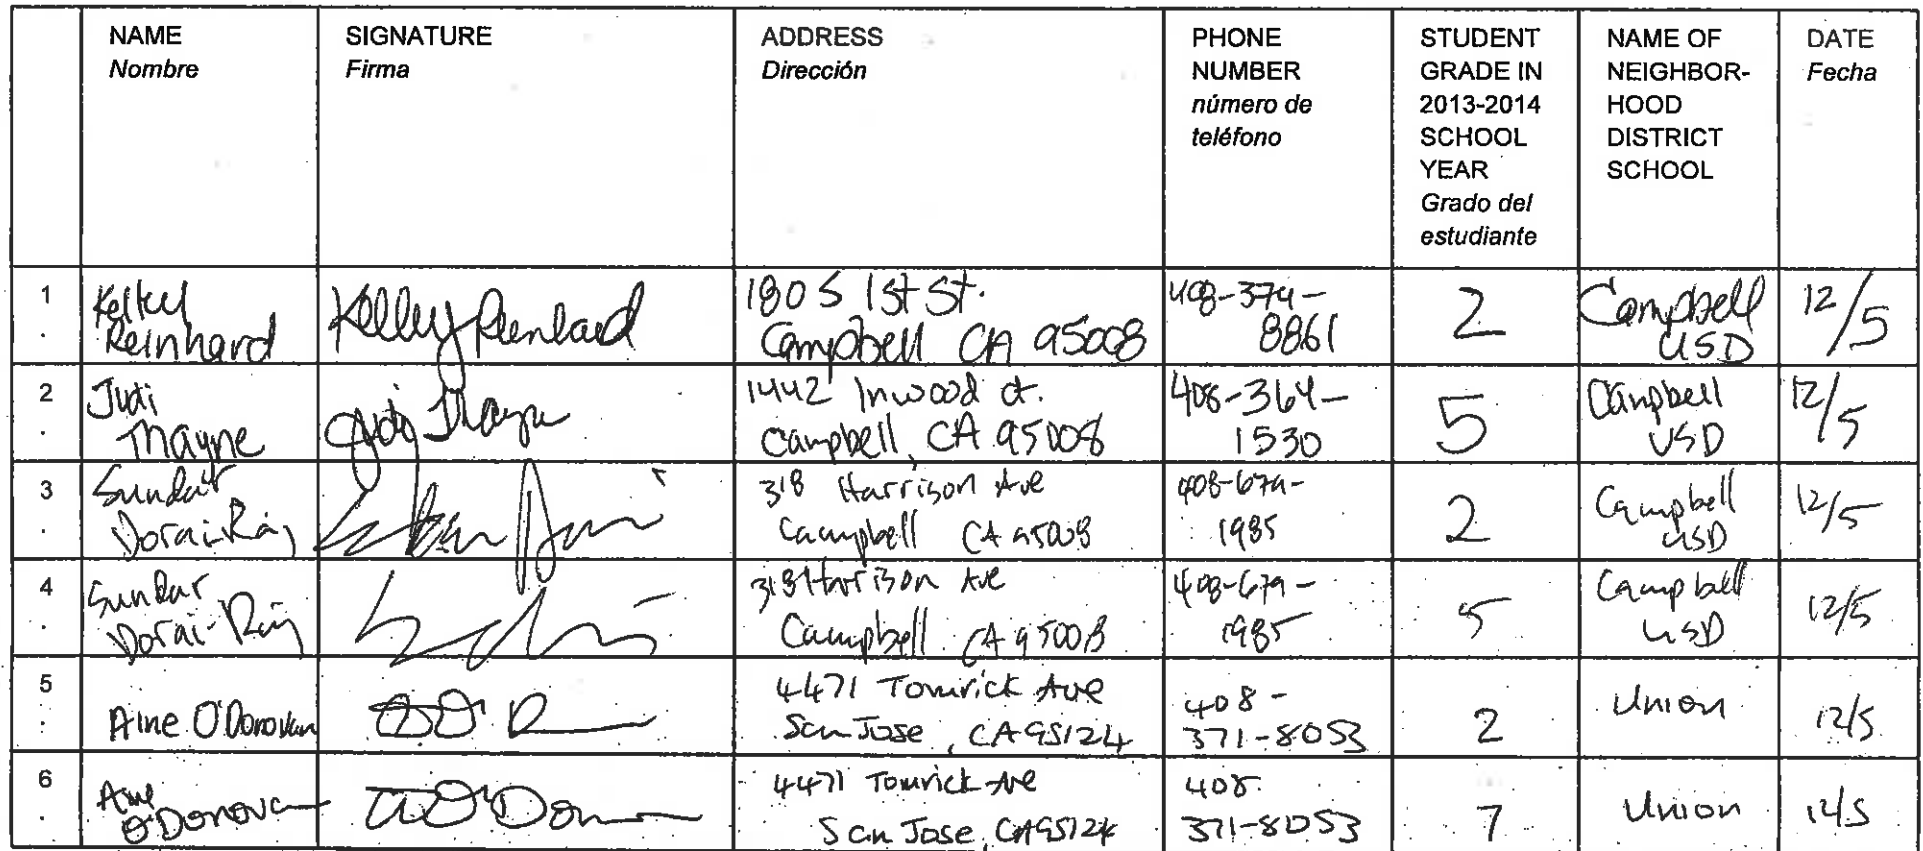 NAME
Nombre
SIGNATURE
Firma
ADDRESS
Dirección
PHONE
NUMBER
número de
teléfono
STUDENT
GRADE IN
2013-2014
SCHOOL
YEAR
Grado del
estudiante
NAME OF
NEIGHBOR-
HOOD
DISTRICT
SCHOOL
DATE
Fecha
1
.
Kelley
Reinhard
Kelley Reinhard
180 S 1st St.
Campbell CA 95008
408-374-
8861
2
Campbell
USD
12/5
2
.
Judi
Mayne
Judi Mayne
1442 Inwood ct.
Campbell, CA 95008
408-364-
1530
5
Campbell
USD
12/5
3
.
Sundar
Dorai-Raj
318 Harrison Ave
Campbell CA 95008
408-679-
1985
2
Campbell
USD
12/5
4
.
Sundar
Dorai-Raj
318 Harrison Ave
Campbell CA 95008
408-679-
1985
5
Campbell
USD
12/5
5
.
Aine O'Donovan
4471 Tomrick Ave
San Jose, CA 95124
408-
371-8053
2
Union
12/5
6
.
Aine
O'Donovan
4471 Tomrick Ave
San Jose, CA 95124
408.
371-8053
7
Union
12/5